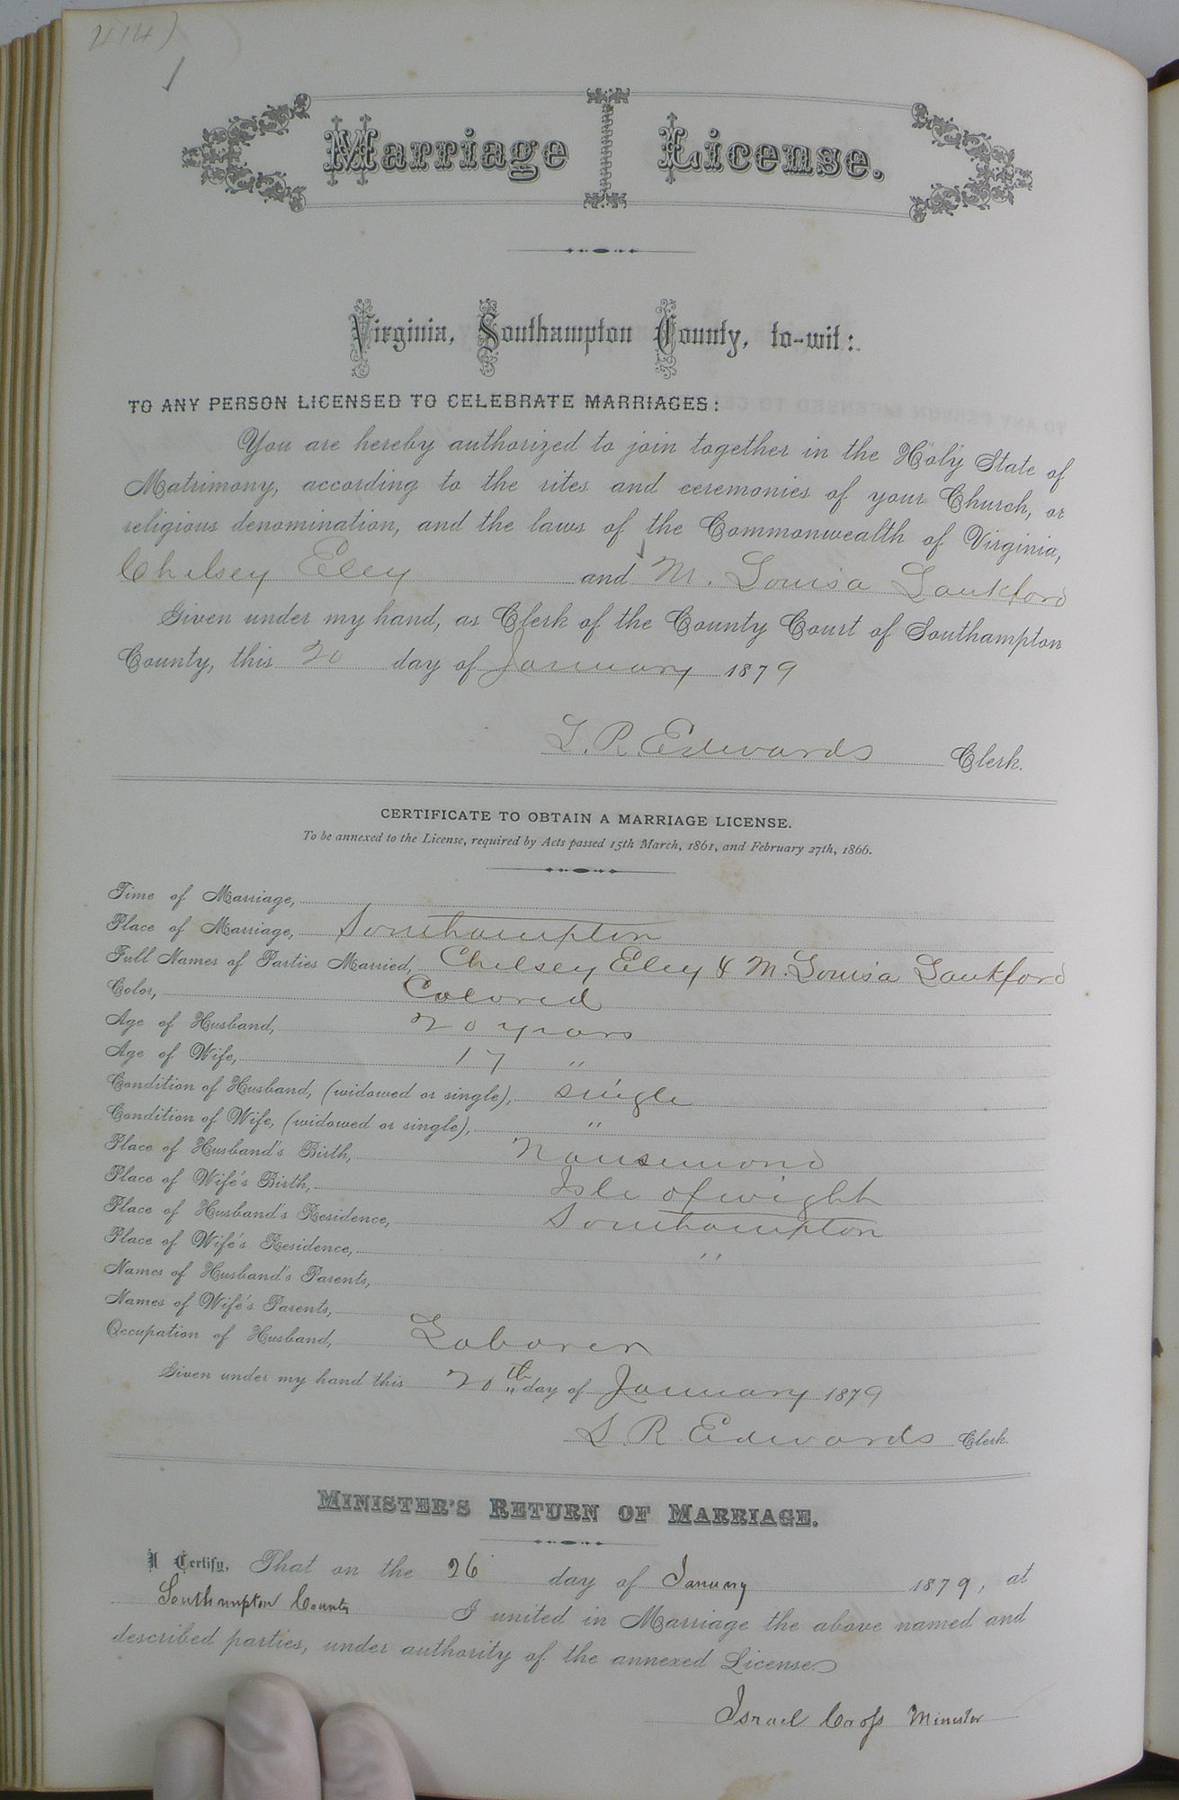 Marriage License.
Virginia, Southampton County, to-wit:
TO ANY PERSON LICENSED TO CELEBRATE MARRIAGES:
You are hereby authorized to join together in the Holy State of
Matrimony, according to the rites and ceremonies of your Church, or
religious denomination, and the laws of the Commonwealth of Virginia,
Chelsey Eley and M. Louisa Lankford
Given under my hand, as Clerk of the County Court of Southampton
County, this 20 day of January 1879
L. R. Edwards Clerk.
CERTIFICATE TO OBTAIN A MARRIAGE LICENSE.
To be annexed to the License, required by Acts passed 15th March, 1861, and February 27th, 1866.
Time of Marriage,
Place of Marriage, Southampton
Full Names of Parties Married, Chelsey Eley & M. Louisa Lankford
Color, Colored
Age of Husband, 20 years
Age of Wife, 17 "
Condition of Husband, (widowed or single), single
Condition of Wife, (widowed or single), "
Place of Husband's Birth, Nansemond
Place of Wife's Birth, Isle of wight
Place of Husband's Residence, Southampton
Place of Wife's Residence, "
Names of Husband's Parents,
Names of Wife's Parents,
Occupation of Husband, Laborer
Given under my hand this 20th day of January 1879
L. R. Edwards Clerk.
MINISTER'S RETURN OF MARRIAGE.
I Certify, That on the 26 day of January 1879, at
Southampton County I united in Marriage the above named and
described parties, under authority of the annexed License.
Israel Cross Minister